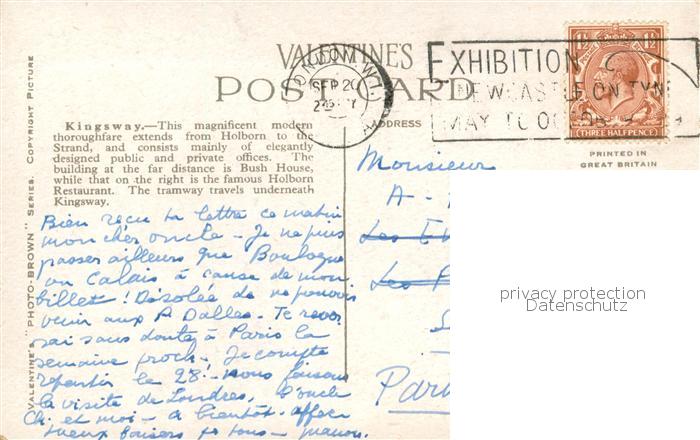 VALENTINE'S
POST CARD
LONDON. W.1.
SEP 20
EXHIBITION
NEWCASTLE-ON-TYNE
MAY TO OCT
1½ 1½
THREE HALFPENCE
PRINTED IN
GREAT BRITAIN
ADDRESS
VALENTINE'S "PHOTO-BROWN" SERIES. COPYRIGHT PICTURE
Kingsway.—This magnificent modern
thoroughfare extends from Holborn to the
Strand, and consists mainly of elegantly
designed public and private offices. The
building at the far distance is Bush House,
while that on the right is the famous Holborn
Restaurant. The tramway travels underneath
Kingsway.
Bien reçu ta lettre ce matin
mon cher oncle - Je ne puis
passer ailleurs que Boulogne
ou Calais à cause de mon
billet! Désolée de ne pouvoir
venir aux P. Dalles. Te rever
rai sans doute à Paris la
semaine proch. Je compte
repartir le 28 - nous faisons
la visite de Londres, l'oncle
Ch. et moi - à bientôt. affec
tueux baisers à tous - manon.
Monsieur
A -
Les
Les
Par
privacy protection
Datenschutz